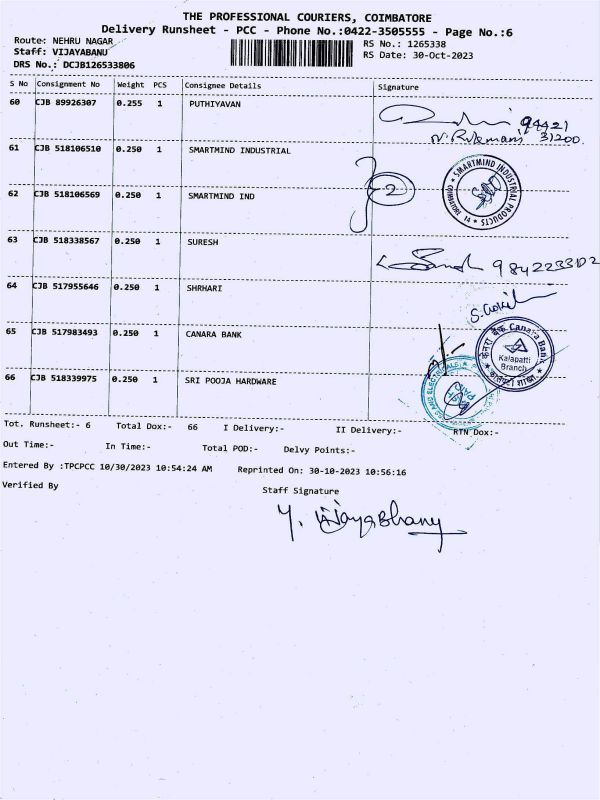 THE PROFESSIONAL COURIERS, COIMBATORE
Delivery Runsheet - PCC - Phone No.:0422-3505555 - Page No.:6
Route: NEHRU NAGAR
RS No.: 1265338
Staff: VIJAYABANU
RS Date: 30-Oct-2023
DRS No.: DCJB126533806
S No Consignment No Weight PCS Consignee Details Signature
60 CJB 89926307 0.255 1 PUTHIYAVAN
94421
N. Rukmani 31200
61 CJB 518106510 0.250 1 SMARTMIND INDUSTRIAL
SMARTMIND INDUSTRIAL PRODUCTS
62 CJB 518106569 0.250 1 SMARTMIND IND
2
63 CJB 518338567 0.250 1 SURESH
64 CJB 517955646 0.250 1 SHRHARI
65 CJB 517983493 0.250 1 CANARA BANK
केनरा बैंक Canara Bank
Kalapatti
Branch
66 CJB 518339975 0.250 1 SRI POOJA HARDWARE
Tot. Runsheet:- 6 Total Dox:- 66 I Delivery:- II Delivery:- RTN Dox:-
Out Time:- In Time:- Total POD:- Delvy Points:-
Entered By :TPCPCC 10/30/2023 10:54:24 AM Reprinted On: 30-10-2023 10:56:16
Verified By
Staff Signature
Y. VijayaBhany